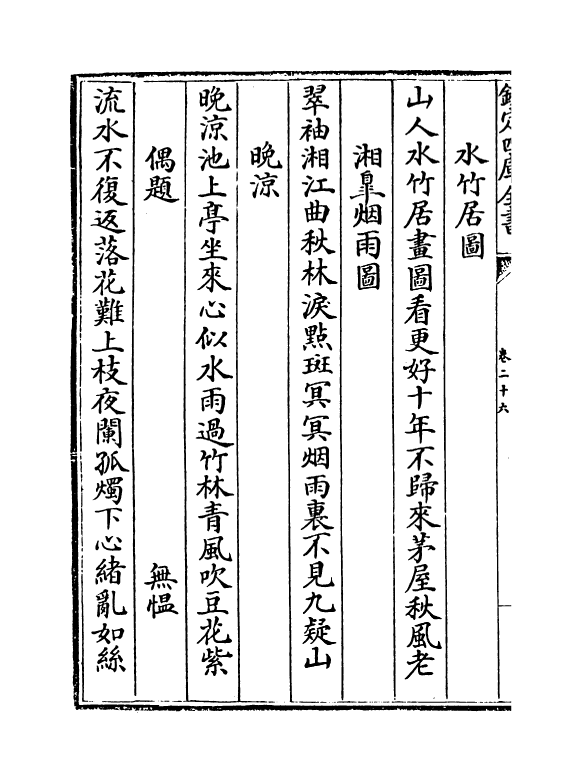 欽定四庫全書
卷二十六
水竹居圖
山人水竹居畫圖看更好十年不歸來茅屋秋風老
湘臯烟雨圖
翠袖湘江曲秋林淚點斑冥冥烟雨裏不見九疑山
晚涼
晚涼池上亭坐來心似水雨過竹林青風吹豆花紫
偶題 無愠
流水不復返落花難上枝夜闌孤燭下心緒亂如絲